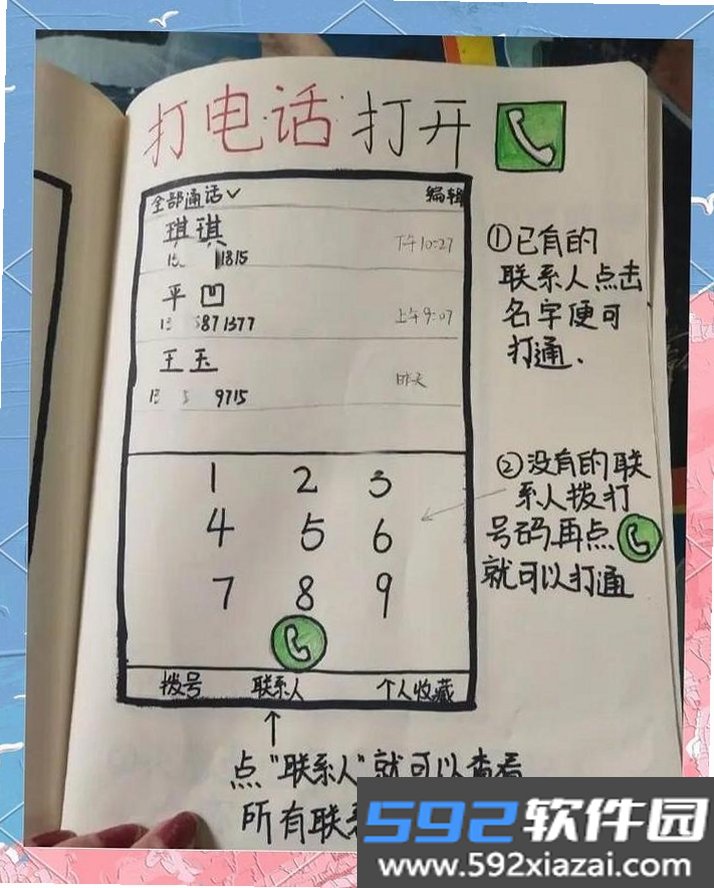 打电话打开
全部通话 编辑
琪琪
1815 下午10:27
平凹
13 5871377 上午9:07
王玉
13 5 9715 昨天
①已有的
联系人点击
名字便可
打通.
1 2 3
4 5 6
7 8 9
②没有的联
系人拨打
号码,再点
就可以打通
拨号 联系人 个人收藏
点"联系人"就可以查看
所有联
592软件园
www.592xiazai.com